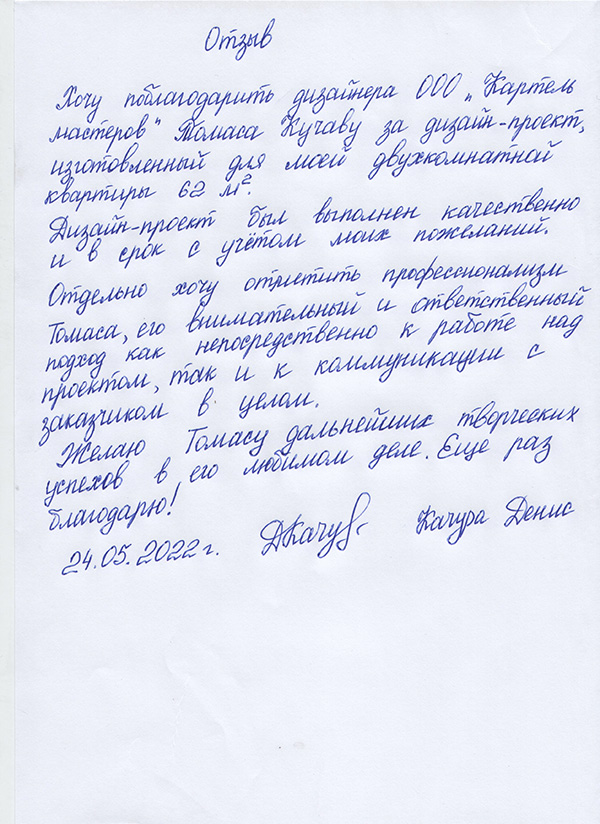 Отзыв
Хочу поблагодарить дизайнера ООО „Картель
мастеров" Томаса Кучаву за дизайн-проект,
изготовленный для моей двухкомнатной
квартиры 62 м².
Дизайн-проект был выполнен качественно
и в срок с учётом моих пожеланий.
Отдельно хочу отметить профессионализм
Томаса, его внимательный и ответственный
подход как непосредственно к работе над
проектом, так и к коммуникации с
заказчиком в целом.
Желаю Томасу дальнейших творческих
успехов в его любимом деле. Еще раз
благодарю!
24.05.2022 г. ДКачур Качура Денис